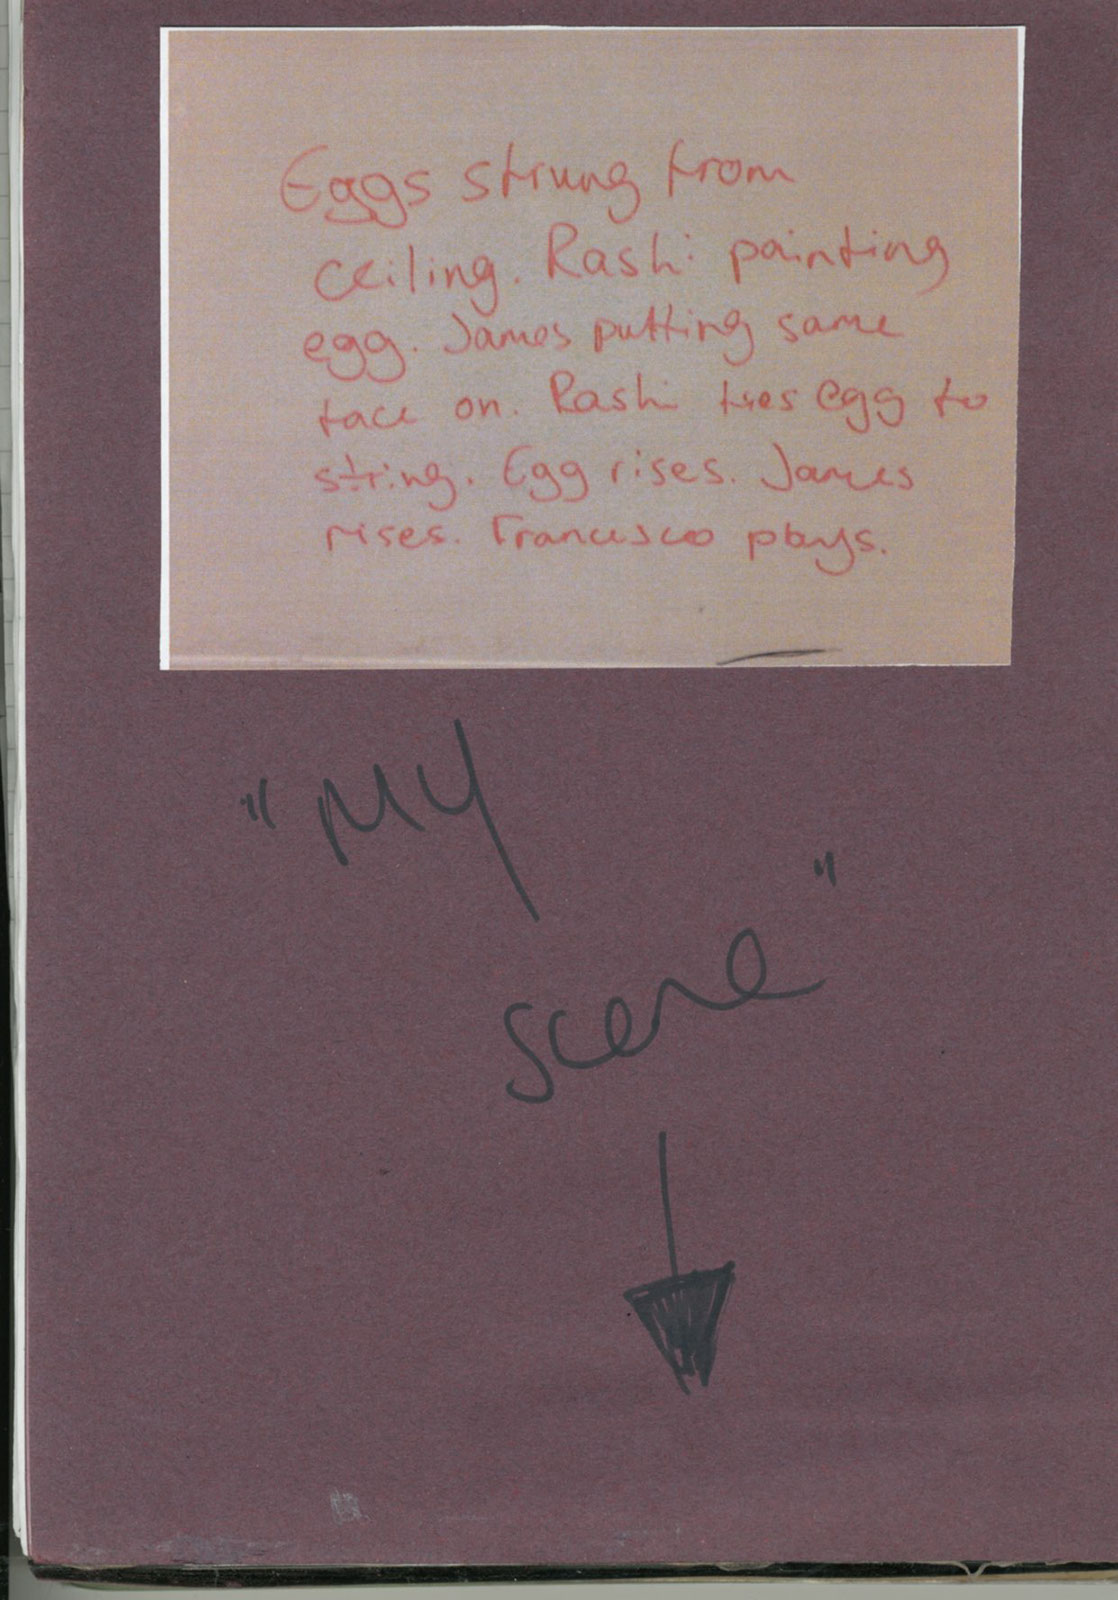 Eggs strung from
ceiling. Rashi painting
egg. James putting same
face on. Rashi ties egg to
string. Egg rises. James
rises. Francesco plays.
"MY
scene"